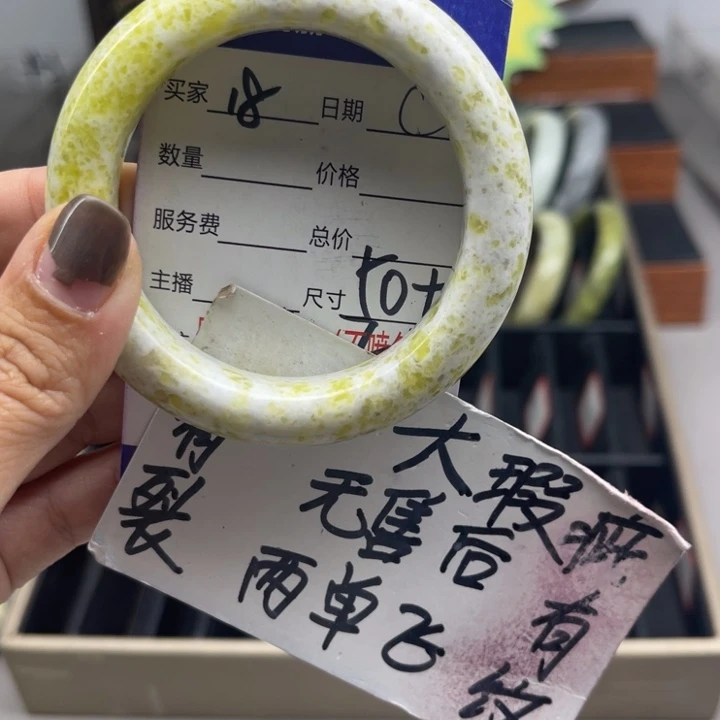 买家 18 日期
数量 价格
服务费 总价
主播 尺寸 50+
大瑕疵有纹
有裂
无售后
两单飞